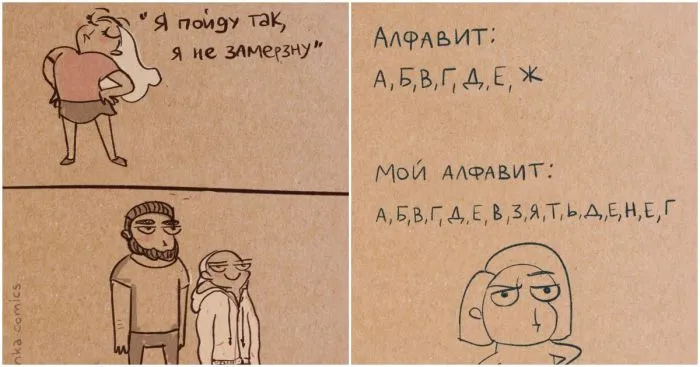 "Я пойду так,
я не замерзну"
nka.comics
Алфавит:
А,Б,В,Г,Д,Е,Ж
Мой алфавит:
А,Б,В,Г,Д,Е,В,З,Я,Т,Ь,Д,Е,Н,Е,Г